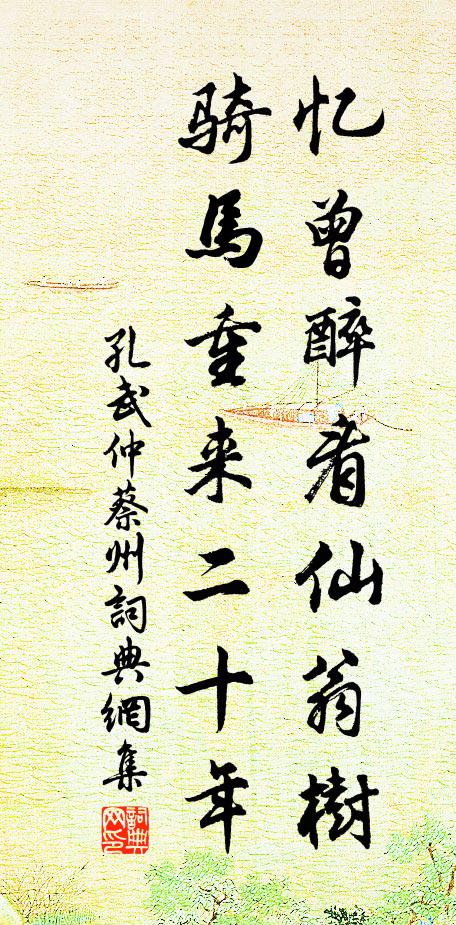 忆曾醉看仙翁树
骑马重来二十年
孔武仲蔡州词典网集
词典网印